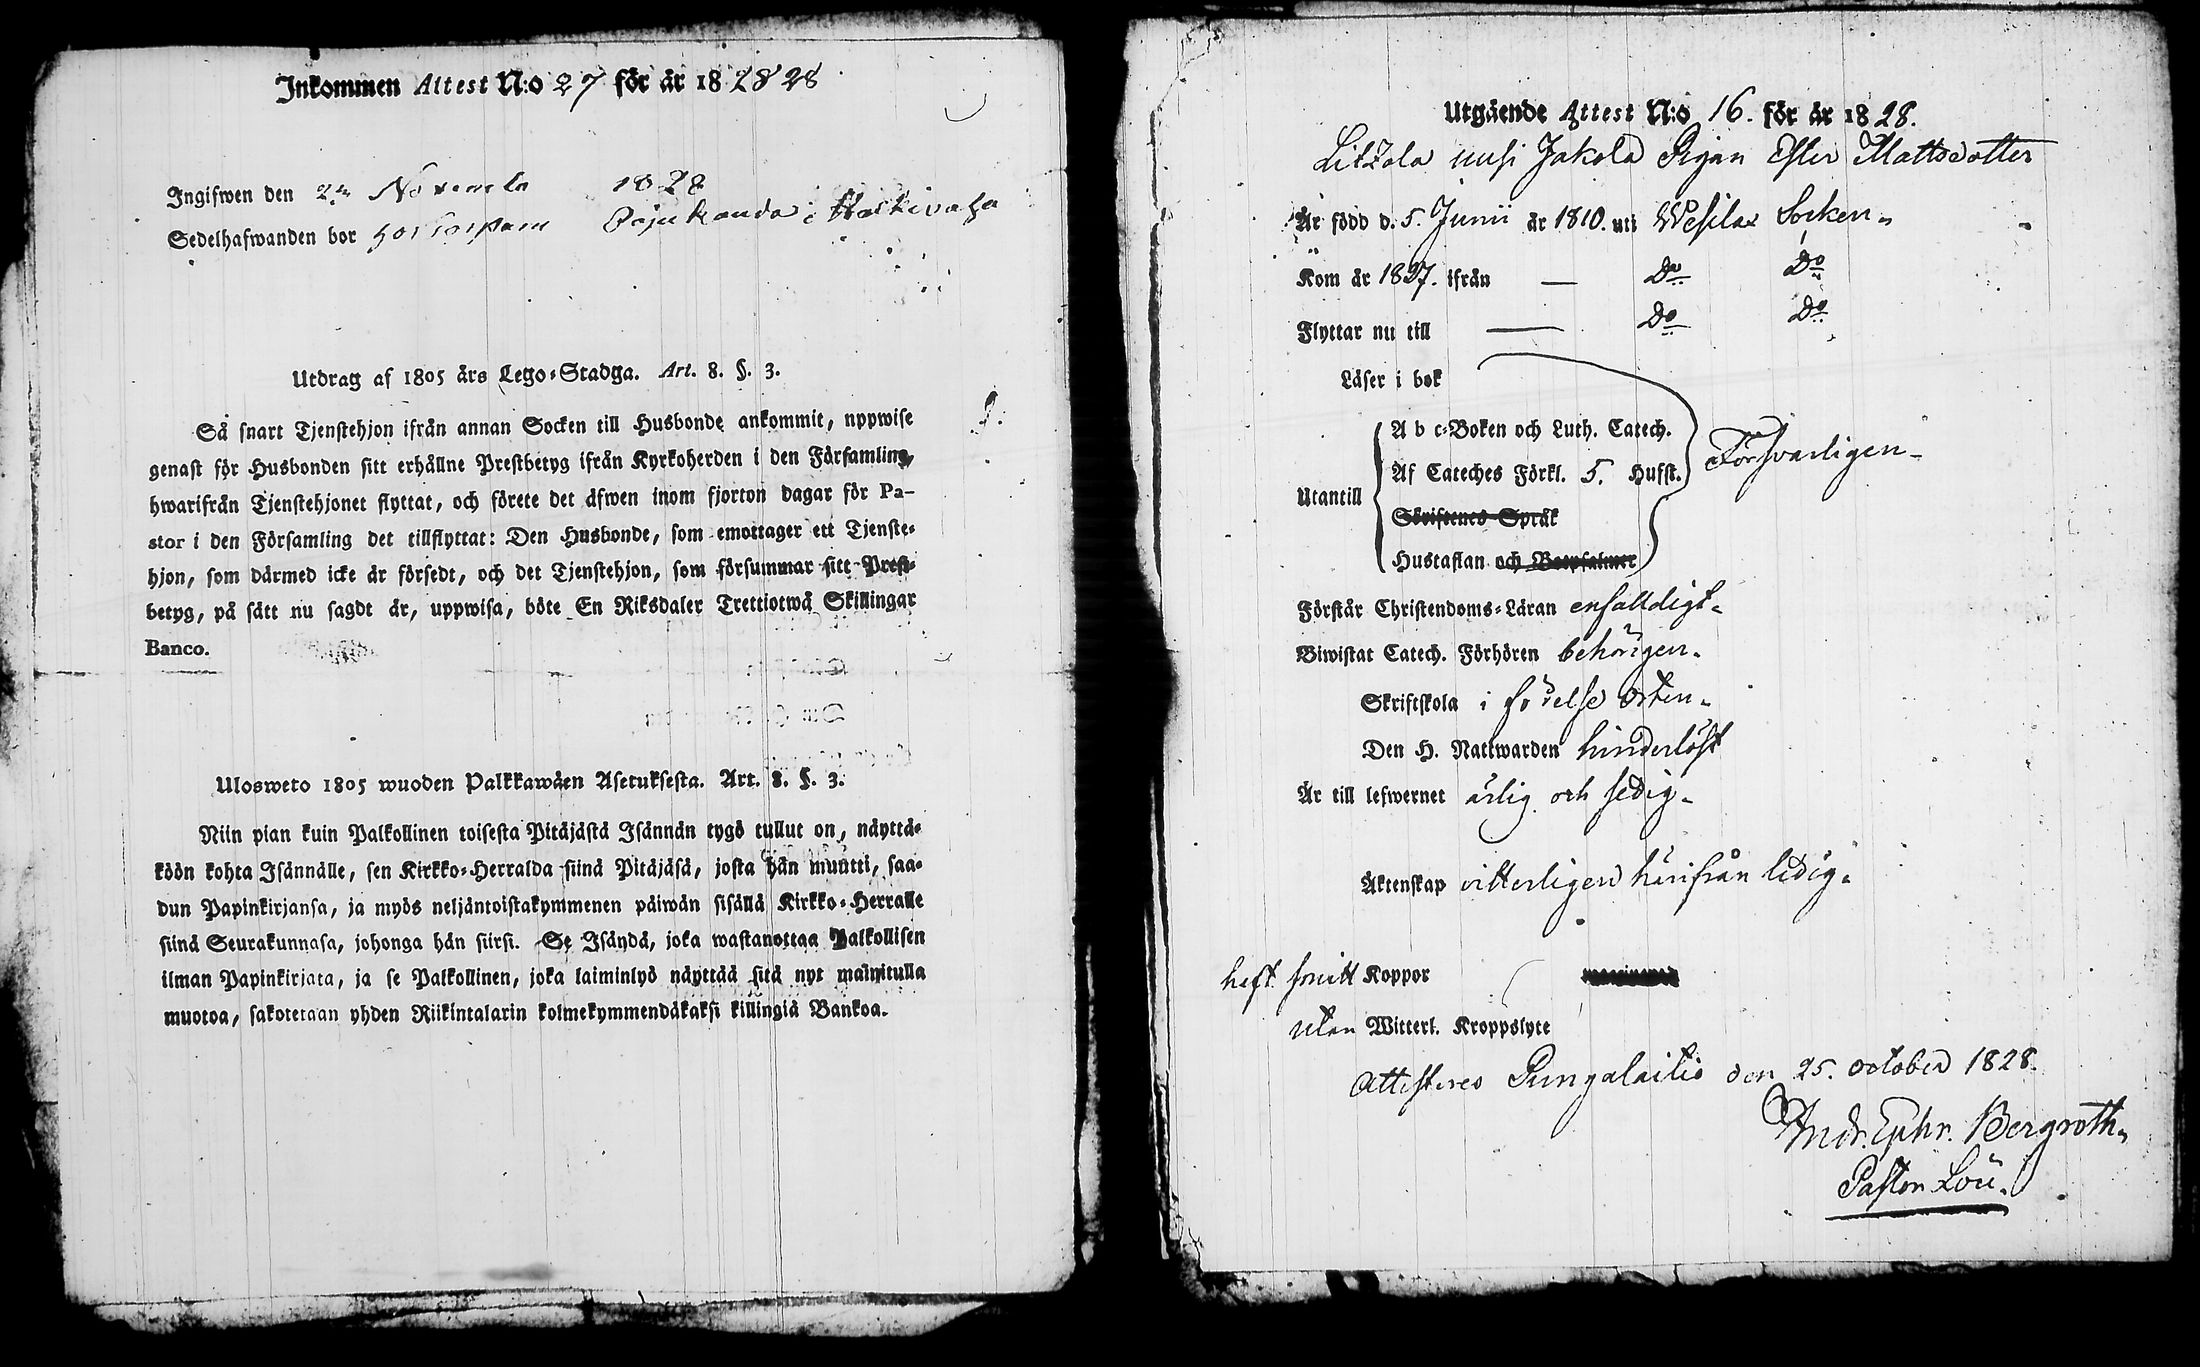 Inkommen Attest N:o 27 för år 18 2828
Ingifwen den 2 Novemb 1828
Sedelhafwanden bor hos Pajukanda i Halkivaha
Utdrag af 1805 års Lego-Stadga. Art. 8. §. 3.
Så snart Tjenstehjon ifrån annan Socken till Husbonde ankommit, nppwise
genast för Husbonden sitt erhållne Prestbetyg ifrån Kyrkoherden i den Församling,
hwarifrån Tjenstehjonet flyttat, och förete det äfwen inom fjorton dagar för Pa-
stor i den Församling det tillflyttat: Den Husbonde, som emottager ett Tjenste-
hjon, som därmed icke är försedt, och det Tjenstehjon, som försummar sitt Prest-
betyg, på sätt nu sagdt är, uppwisa, böte En Riksdaler Trettiotwå Skillingar
Banco.
Ulosweto 1805 wuoden Palkkawäen Asetuksesta. Art. 8. §. 3.
Niin pian kuin Palkollinen toisesta Pitäjästä Isännän tygö tullut on, näyttä-
köön kohta Isännälle, sen Kirkko-Herralda siinä Pitäjäsä, josta hän muutti, saa-
dun Papinkirjansa, ja myös neljäntoistakymmenen päiwän sisällä Kirkko-Herralle
siinä Seurakunnasa, johonga hän siirsi. Se Isändä, joka wastanottaa Palkollisen
ilman Papinkirjata, ja se Palkollinen, joka laiminlyö näyttää sitä nyt mainitulla
muotoa, sakotetaan yhden Riikintalarin kolmekymmendäkaksi killingiä Bankoa.
Utgående Attest N:o 16. för år 1828.
Litzola uusi Jakola Pigan Ester Mattsdotter
Är född d. 5. Junii år 1810. uti Wesilax Socken
Kom år 1827. ifrån — Do Do
Flyttar nu till — Do Do
Läser i bok
A b c-Boken och Luth. Catech.
Af Cateches Förkl. 5. Hufst. Försvarligen
Utantill
Skriftenes Språk
Hustaflan och Botpsalmer
Förstår Christendoms-Läran enfalldigt
Biwistat Catech. Förhören behörigen.
Skriftskola i födelse orten
Den H. Nattwarden hinderlöst
Är till lefwernet ärlig och sedig
Äktenskap vitterligen härifrån ledig.
haft smitt Koppor
utan Witterl. Kroppslyte
Attesteres Pungalaitio den 25. October 1828.
Andr. Ephr. Bergroth
Pastor Loci.